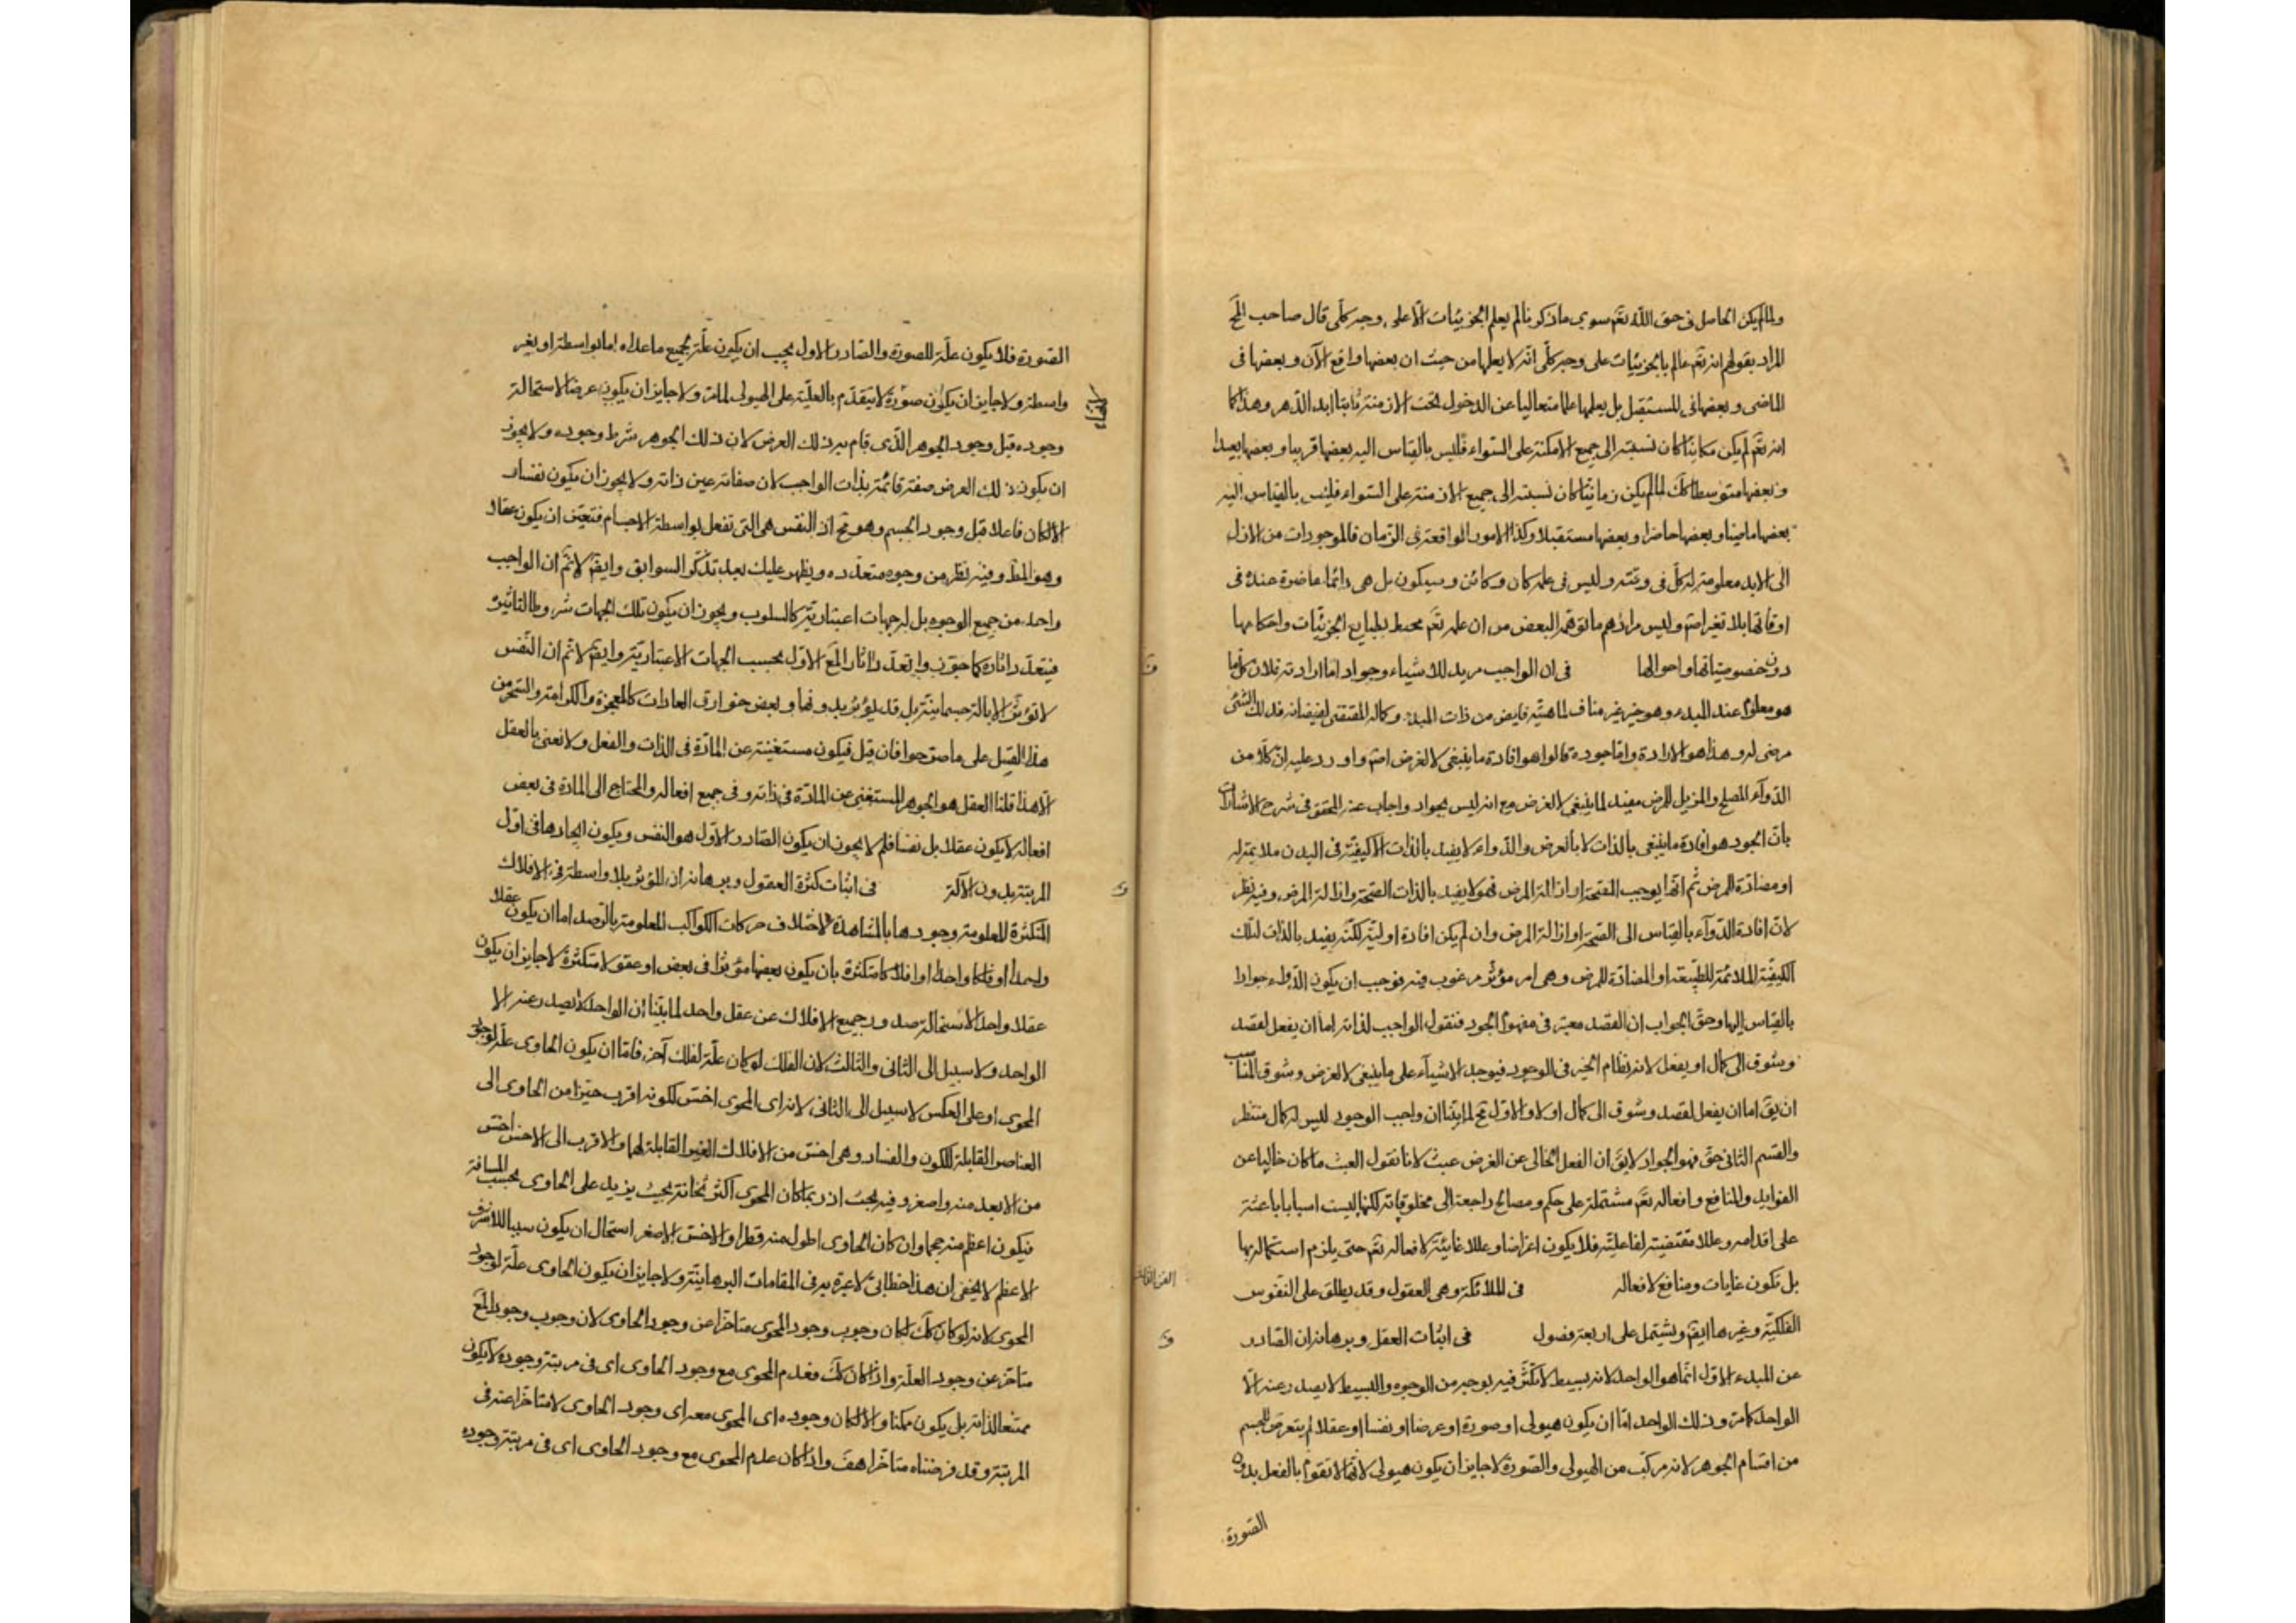 ولما لم يكن الحاصل فى حق الله تعَ سوى ما ذكرنا لم يعلم الجزئيات الا على وجه كلى قال صاحب المح
المراد بقولهم انه تعَ عالم بالجزئيات على وجه كلى انه لا يعلمها من حيث ان بعضها واقع الآن وبعضها فى
الماضى وبعضها فى المستقبل بل يعلمها علما متعاليا عن الدخول تحت الازمنة ثابتا ابد الدهر وهذا كما
انه تعَ لم يكن مكانيا كان نسبته الى جميع الامكنة على السواء فليس بالقياس اليه بعضها قريبا وبعضها بعيدا
وبعضها متوسطا كك لما لم يكن زمانيا كان نسبته الى جميع الازمنة على السواء فليس بالقياس اليه
بعضها ماضيا وبعضها حاضرا وبعضها مستقبلا وكذا الامور الواقعة فى الزمان فالموجودات من الازل
الى الابد معلومة له كل فى وقته وليس فى علمه كان وكائن وسيكون بل هى دائما حاضرة عنده فى
اوقاتها بلا تغير اصم وليس مرادهم ما توهمه البعض من ان علمه تعَ محيط بطبايع الجزئيات واحكامها
دون خصوصياتها واحوالها فى ان الواجب مريد للاشياء وجواد اما ارادته فلان كل ما
هو معلوم عند المبدء وهو خير غير مناف لماهيته فايض من ذات المبدء وكماله المقتضى لفيضانه فذلك الشئ
مرضى له وهذا هو الارادة واما جوده قالوا هو افادة ما ينبغى لا لغرض اصم واورد عليه ان كلا من
الدوآء المصلح والمزيل للمرض مفيد لما ينبغى لا لغرض مع انه ليس بجواد واجاب عنه المحقق فى شرح الاشارات
بان الجود هو افادة ما ينبغى بالذات لا بالعرض والدواء لا يفيد بالذات الا كيفية فى البدن ملايمة له
او مضادة للمرض ثم انها يوجب الصحة او ازالة المرض فهو لا يفيد بالذات الصحة وازالة المرض وفيه نظر
لان افادة الدوآء بالقياس الى الصحة او ازالة المرض وان لم يكن افادة اولية لكنه يفيد بالذات لتلك
الكيفية الملائمة للطبيعة او المضادة للمرض وهى امر مؤثر مرغوب فيه فوجب ان يكون الدواء جوادا
بالقياس اليها وحق الجواب ان القصد معتبر فى مفهوم الجود فنقول الواجب لذاته اما ان يفعل لقصد
وشوق الى كمال او يفعل لانه نظام الخير فى الوجود فيوجد الاشيآء على ما ينبغى لا لغرض وشوق المناسب
ان يقَ اما ان يفعل لقصد وشوق الى كمال او لا والاول مح لما بينا ان واجب الوجود ليس له كمال منتظر
والقسم الثانى حق فهو الجواد لا يقَ ان الفعل الخالى عن الغرض عبث لانا نقول العبث ما كان خاليا عن
الفوايد والمنافع وافعاله تعَ مشتملة على حكم ومصالح راجعة الى مخلوقاته لكنها ليست اسبابا باعثة
على اقدامه وعللا مقتضية لفاعليته فلا يكون اغراضا وعللا غائية لافعاله تعَ حتى يلزم استكماله بها
بل تكون غايات ومنافع لافعاله فى الملائكة وهى العقول وقد يطلق على النفوس
الفلكية وغيرها ايضَ ويشتمل على اربعة فصول فى اثبات العقل وبرهانه ان الصادر
عن المبدء الاول انما هو الواحد لانه بسيط لا تكثر فيه بوجه من الوجوه والبسيط لا يصدر عنه الا
الواحد كما مر وذلك الواحد اما ان يكون هيولى او صورة او عرضا او نفسا او عقلا لم يتعرض للجسم
من اقسام الجوهر لانه مركب من الهيولى والصورة لا جايز ان يكون هيولى لانها لا تقوم بالفعل بدون
الصورة
الصورة فلا يكون علة للصورة والصادر الاول يجب ان يكون علة لجميع ما عداه اما بواسطة او بغير
واسطة ولا جايز ان يكون صورة لا تتقدم بالعلية على الهيولى لما مر ولا جايز ان يكون عرضا لاستحالة
وجوده قبل وجود الجوهر الذى قام به ذلك العرض لان ذلك الجوهر شرط وجوده ولا يجوز
ان يكون ذلك العرض صفة قائمة بذات الواجب لان صفاته عين ذاته ولا يجوز ان يكون نفسا و
الا لكان فاعلا قبل وجود الجسم وهو مح اذ النفس هى التى تفعل بواسطة الاجسام فتعين ان يكون عقلا
وهو المط وفيه نظر من وجوه متعدده ويظهر عليك بعد تذكر السوابق وايضَ لا نم ان الواجب
واحد من جميع الوجوه بل له جهات اعتبارية كالسلوب ويجوز ان يكون تلك الجهات شروطا لتاثيره
فيتعدد اثاره كما جوزوا تعدد اثار المع الاول بحسب الجهات الاعتبارية وايضَ لا نم ان النفس
لا تؤثر الا بالة جسمانية بل قد يؤثر بدونها وبعض خوارق العادات كالمعجزة والكرامة والسحر من
هذا القبيل على ما صرحوا فان قيل فيكون مستغنية عن المادة فى الذات والفعل ولا نعنى بالعقل
الا هذا قلنا العقل هو الجوهر المستغنى عن المادة فى ذاته وفى جميع افعاله والمحتاج الى المادة فى بعض
افعاله لا يكون عقلا بل نفسا فلم لا يجوز ان يكون الصادر الاول هو النفس ويكون ايجادها فى اول
المرتبة بدون الآلة فى اثبات كثرة العقول وبرهانه ان المؤثر بلا واسطة فى الافلاك
المتكثرة المعلومة وجودها بالمشاهدة لاختلاف حركات الكواكب المعلومة بالرصد اما ان يكون عقلا
واحدا او فلكا واحدا او افلاكا متكثرة بان يكون بعضها مؤثرا فى بعض او عقولا متكثرة لا جايز ان يكون
عقلا واحدا لاستحالة صدور جميع الافلاك عن عقل واحد لما بينا ان الواحد لا يصدر عنه الا
الواحد ولا سبيل الى الثانى والثالث لان الفلك لو كان علة لفلك آخر فاما ان يكون الحاوى علة لوجود
المحوى او على العكس لا سبيل الى الثانى لانه اى المحوى اخس لكونه اقرب حيزا من الحاوى الى
العناصر القابلة للكون والفساد وهى اخس من الافلاك الغير القابلة لهما والاقرب الى الاخس اخس
من الابعد منه واصغر وفيه بحث اذ ربما كان المحوى اكثر ثخانة بحيث يزيد على الحاوى بحسب المسافة
فيكون اعظم منه حجما وان كان الحاوى اطول منه قطرا والاخس الاصغر استحال ان يكون سببا للاشرف
الاعظم لا يخفى ان هذا خطابى لا عبرة به فى المقامات البرهانية ولا جايز ان يكون الحاوى علة لوجود
المحوى لانه لو كان كك لكان وجوب وجود المحوى متاخرا عن وجود الحاوى لان وجوب وجود المع
متاخر عن وجود العلة واذا كان كك فعدم المحوى مع وجود الحاوى اى فى مرتبة وجوده لا يكون
ممتنعا لذاته بل يكون ممكنا والا لكان وجوده اى المحوى معه اى وجود الحاوى لا متاخرا عنه فى
المرتبة وقد فرضناه متاخرا هف واذا كان عدم المحوى مع وجود الحاوى اى فى مرتبة وجوده